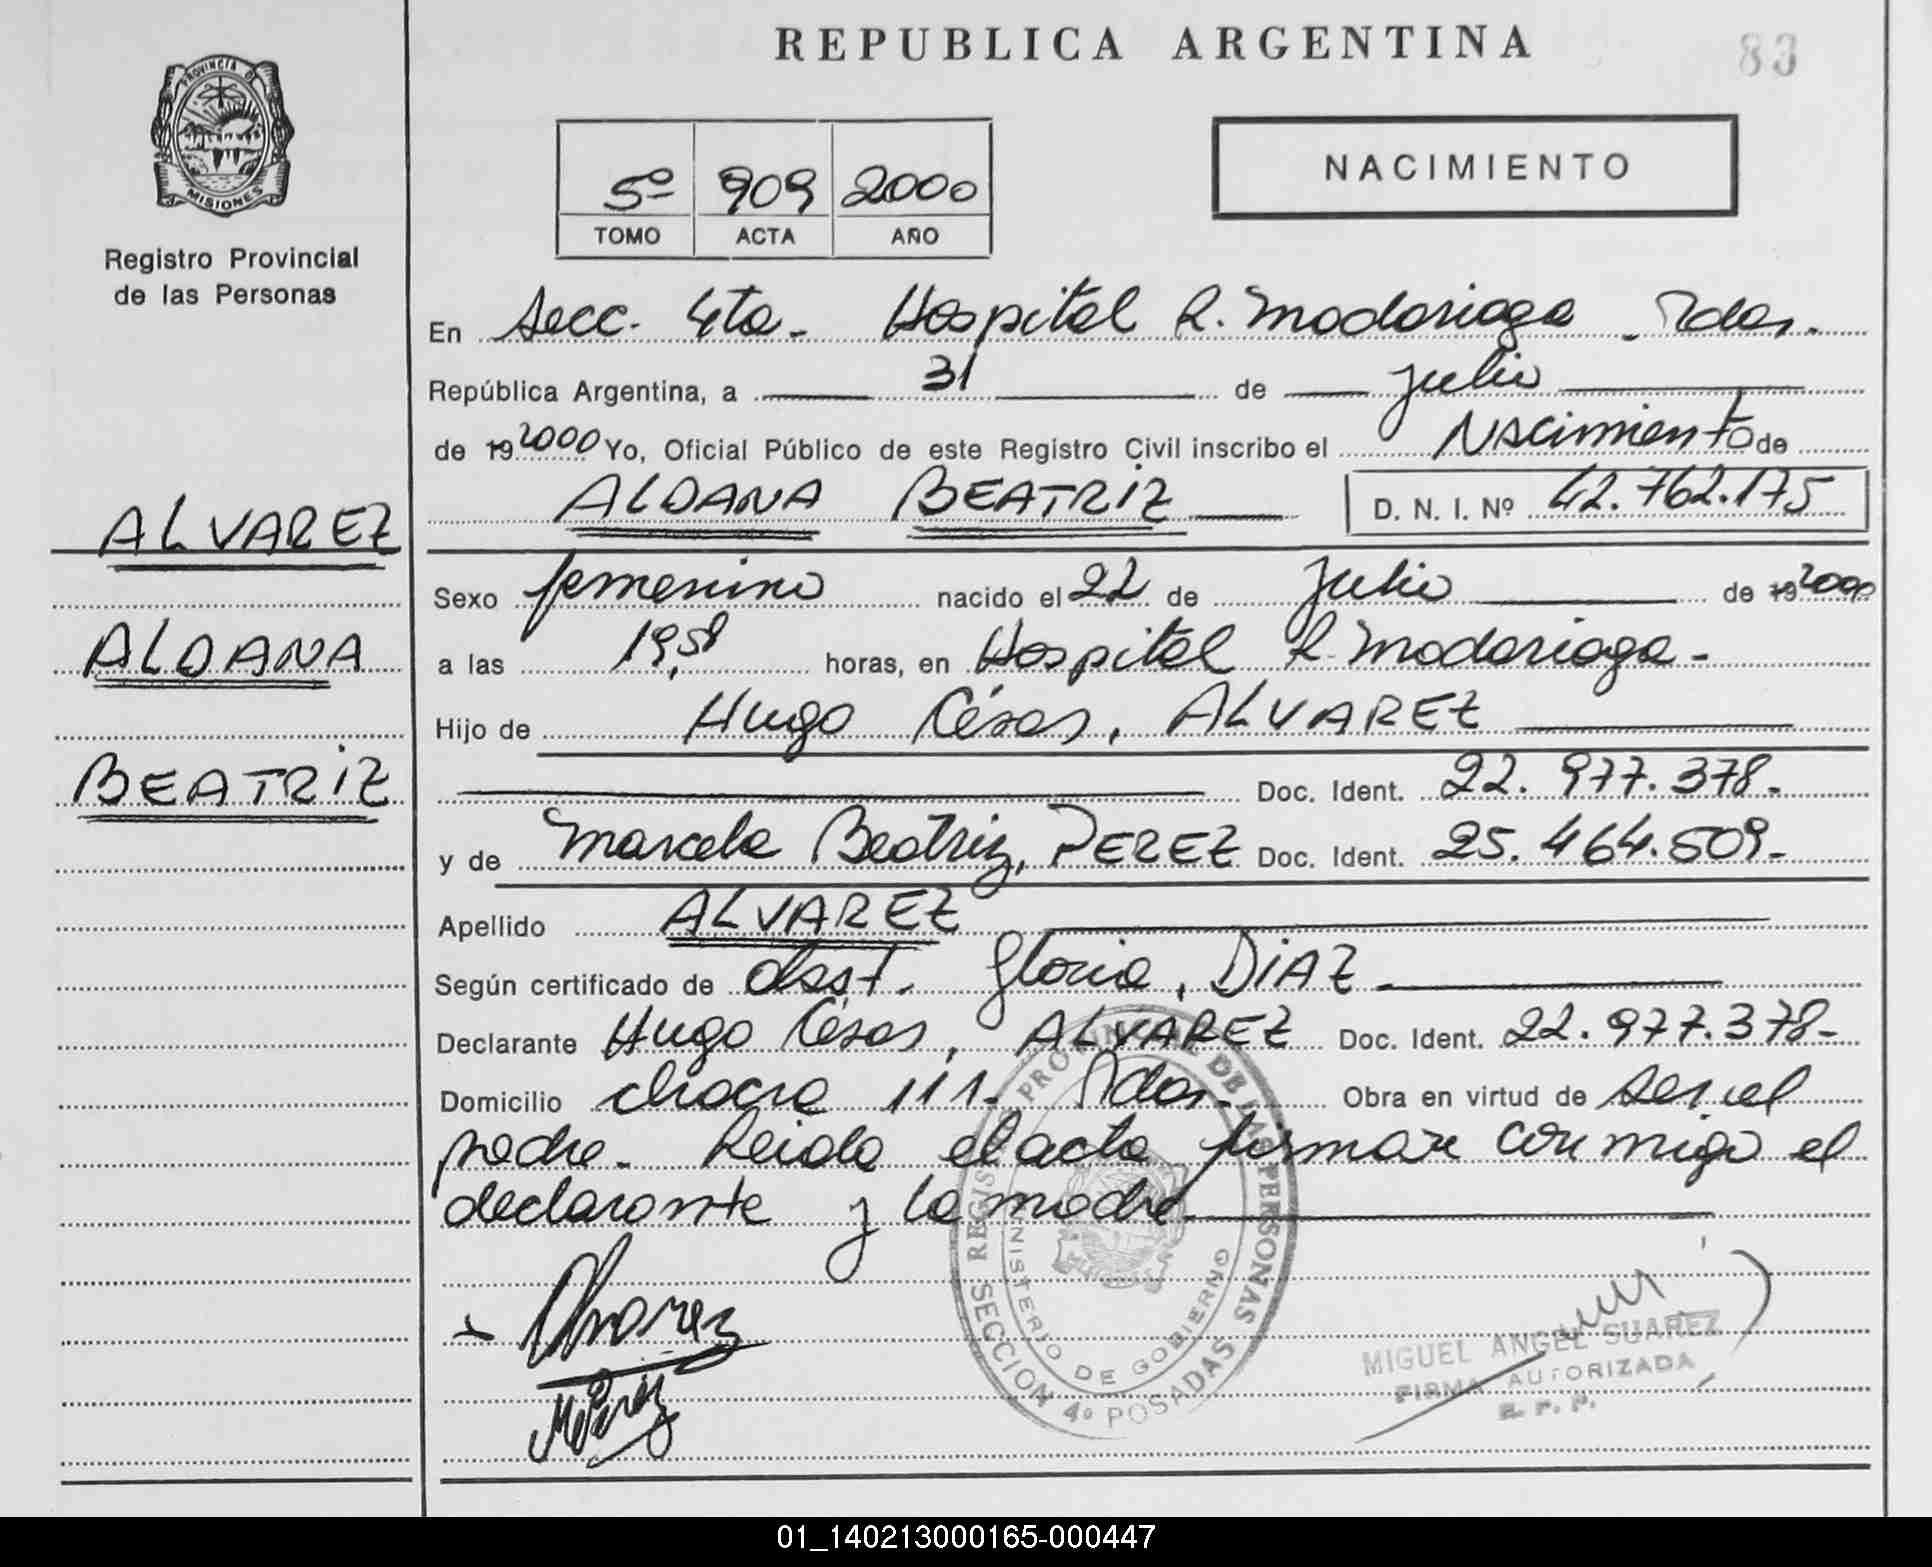 REPUBLICA ARGENTINA
83
PROVINCIA DE
MISIONES
Registro Provincial
de las Personas
5º 909 2000
TOMO ACTA AÑO
NACIMIENTO
En Secc. 4ta. Hospital R. Madariaga. Pdas.
República Argentina, a 31 de Julio
de 19 2000 Yo, Oficial Público de este Registro Civil inscribo el Nacimiento de
ALDANA BEATRIZ D. N. I. Nº 42.762.175
ALVAREZ
ALDANA
BEATRIZ
Sexo femenino nacido el 22 de Julio de 19 2000
a las 19,58 horas, en Hospital R. Madariaga.
Hijo de Hugo César, ALVAREZ
Doc. Ident. 22.977.378.
y de Marcela Beatriz, PEREZ Doc. Ident. 25.464.509.
Apellido ALVAREZ
Según certificado de Obst. Gloria, DIAZ
Declarante Hugo César, ALVAREZ Doc. Ident. 22.977.378.
Domicilio chacra 111. Pdas. Obra en virtud de ser el
padre. Leida el acta firman conmigo el
declarante y la madre.
REGISTRO PROVINCIAL DE LAS PERSONAS
MINISTERIO DE GOBIERNO
SECCION 4º POSADAS
Alvarez
MPérez
MIGUEL ANGEL SUAREZ
FIRMA AUTORIZADA
R. P. P.
01_140213000165-000447